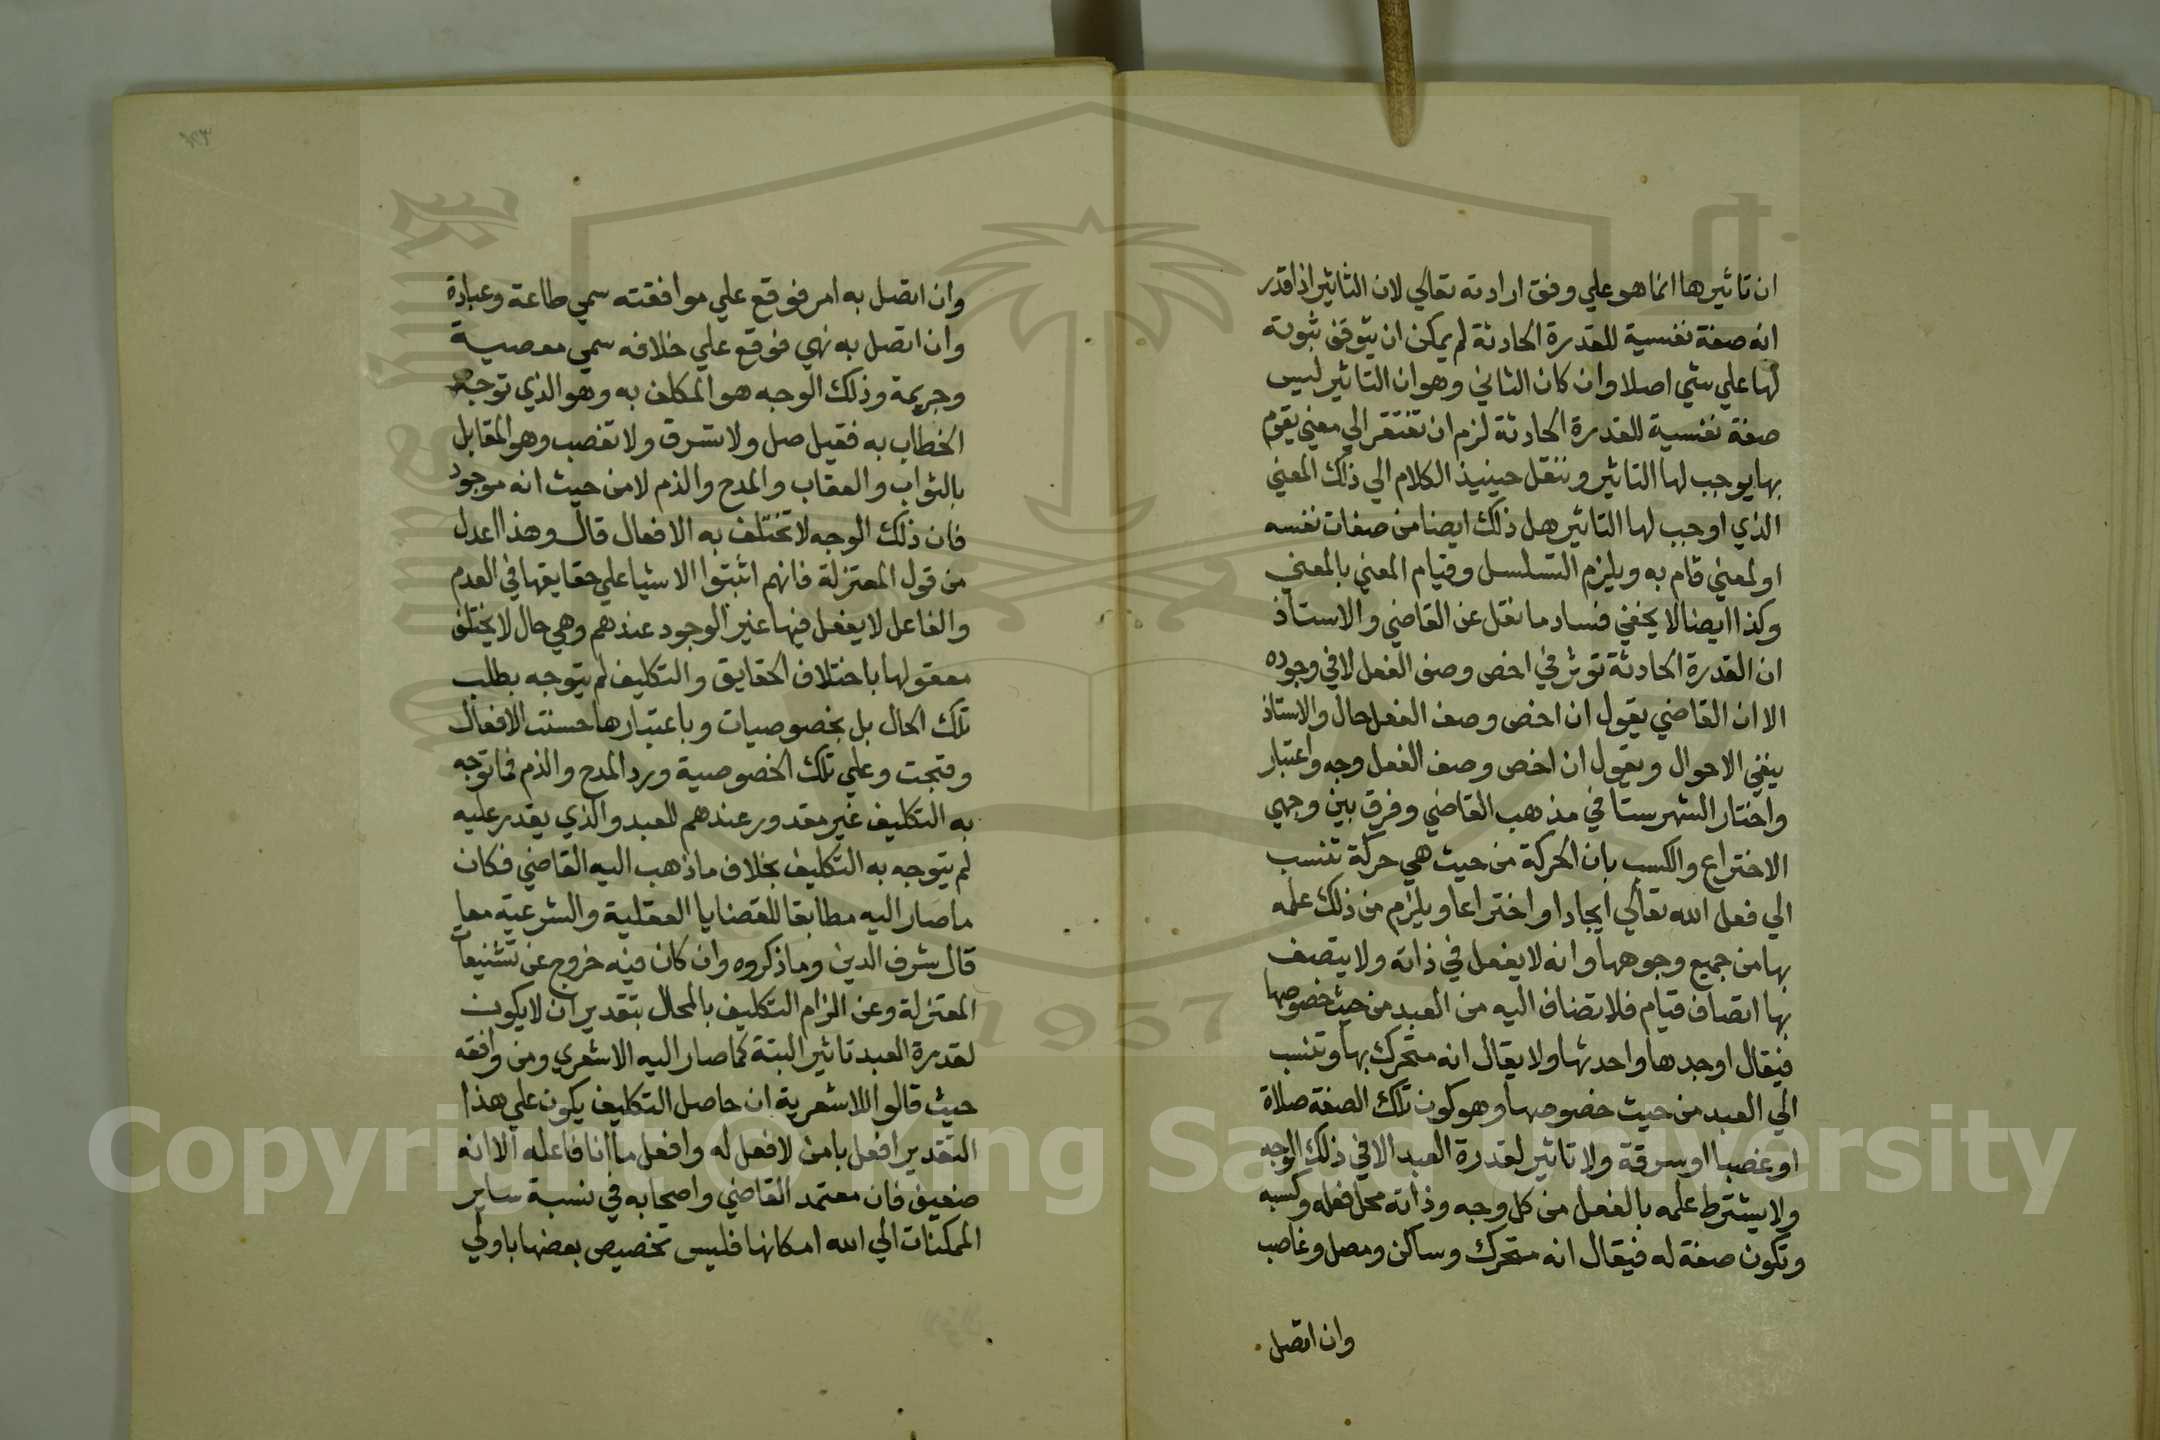 ان تاثيرها انما هو علي وفق ارادته تعالي لان التاثير اذا قدر
انه صفة نفسية للقدرة الحادثة لم يمكن ان يتوقف ثبوته
لها علي شي اصلا وان كان الثاني وهو ان التاثير ليس
صفة نفسية للقدرة الحادثة لزم ان تفتقر الي معني يقوم
بها يوجب لها التاثير وننقل حينيذ الكلام الي ذلك المعني
الذي اوجب لها التاثير هل ذلك ايضا من صفات نفسه
او لمعني قام به ويلزم التسلسل وقيام المعني بالمعني
وكذا ايضا لا يخفي فساد ما نقل عن القاضي والاستاذ
ان القدرة الحادثة توثر في اخص وصف الفعل لا في وجوده
الا ان القاضي يقول ان اخص وصف الفعل حال والاستاذ
ينفي الاحوال ويقول ان اخص وصف الفعل وجه واعتبار
واختار الشهرستاني مذهب القاضي وفرق بين وجهي
الاختراع والكسب بان الحركة من حيث هي حركة تنسب
الي فعل الله تعالي ايجادا واختراعا ويلزم من ذلك علمه
بها من جميع وجوهها وانه لا يفعل في ذاته ولا يتصف
بها اتصاف قيام فلا تضاف اليه من العبد من حيث خصوصها
فيقال اوجدها واحدثها ولا يقال انه متحرك بها وتنسب
الي العبد من حيث خصوصها وهو كون تلك الصفة صلاة
او غصبا او سرقة ولا تاثير لقدرة العبد الا في ذلك الوجه
ولا يشترط علمه بالفعل من كل وجه وذاته محل فعله وكسبه
وتكون صفة له فيقال انه متحرك وساكن ومصل وغاصب
وان اتصل
وان اتصل به امر فوقع علي موافقته سمي طاعة وعبادة
وان اتصل به نهي فوقع علي خلافه سمي معصية
وجريمة وذلك الوجه هو المكلف به وهو الذي توجه
الخطاب به فقيل صل ولا تسرق ولا تغصب وهو المقابل
بالثواب والعقاب والمدح والذم لا من حيث انه موجود
فان ذلك الوجه لا تختلف به الافعال قال وهذا اعدل
من قول المعتزلة فانهم اثبتوا الاشيا علي حقايقها في العدم
والفاعل لا يفعل فيها غير الوجود عندهم وهي حال لا يختلف
معقولها باختلاف الحقايق والتكليف لم يتوجه بطلب
تلك الحال بل بخصوصيات وباعتبارها حسنت الافعال
وقبحت وعلي تلك الخصوصية ورد المدح والذم فما توجه
به التكليف غير مقدور عندهم للعبد والذي يقدر عليه
لم يتوجه به التكليف بخلاف ما ذهب اليه القاضي فكان
ما صار اليه مطابقا للقضايا العقلية والشرعية معا
قال شرف الدين وما ذكروه وان كان فيه خروج عن تشنيعات
المعتزلة وعن الزام التكليف بالمحال بتقدير ان لا يكون
لقدرة العبد تاثير البتة كما صار اليه الاشعري ومن وافقه
حيث قالوا للاشعرية ان حاصل التكليف يكون علي هذا
التقدير افعل يا من لا فعل له وافعل ما انا فاعله الا انه
ضعيف فان معتمد القاضي واصحابه في نسبة ساير
الممكنات الي الله امكانها فليس تخصيص بعضها باولي
Copyright © King Saud University
1957